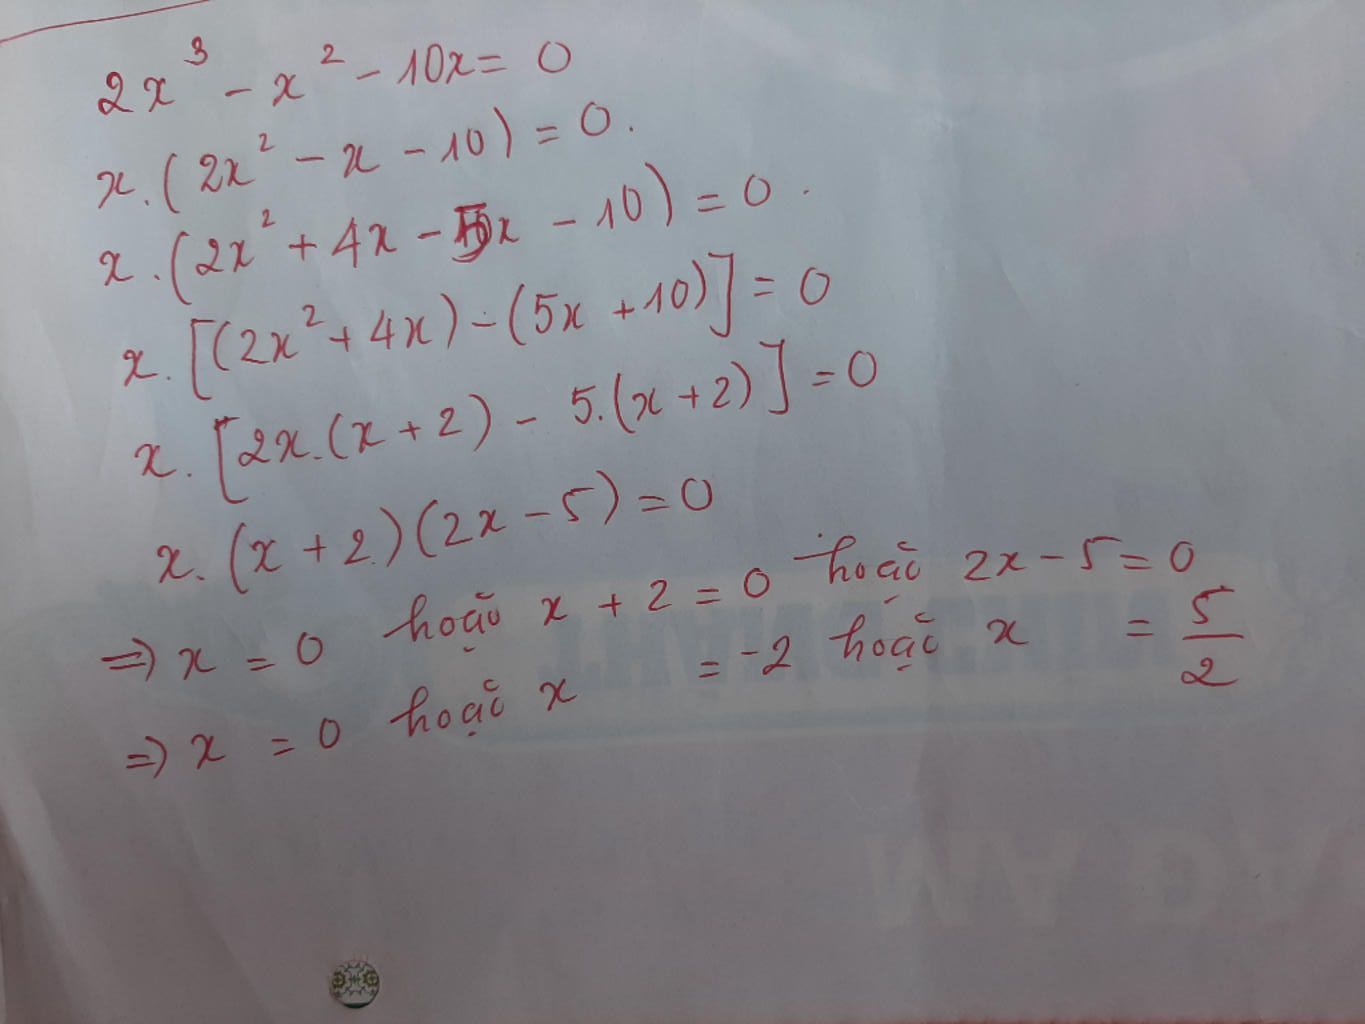 2x³ - x² - 10x = 0
x.(2x² - x - 10) = 0.
x.(2x² + 4x - 5x - 10) = 0.
x.[(2x² + 4x) - (5x + 10)] = 0
x.[2x.(x + 2) - 5.(x + 2)] = 0
x.(x + 2)(2x - 5) = 0
=> x = 0 hoặc x + 2 = 0 hoặc 2x - 5 = 0
=> x = 0 hoặc x = -2 hoặc x = 5/2